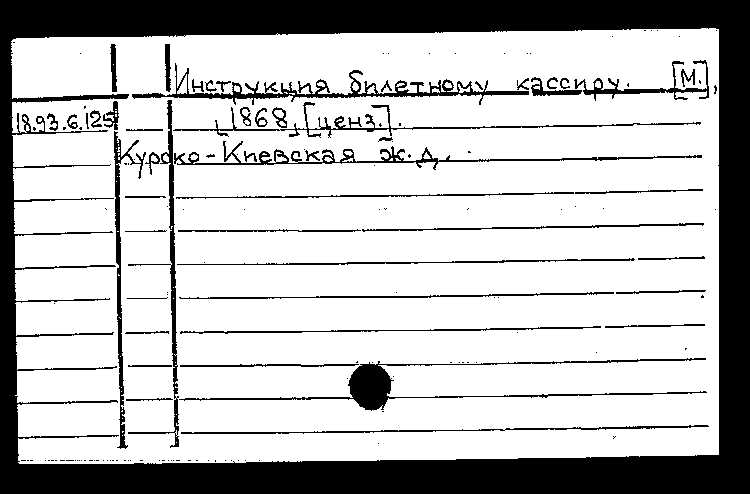 Инструкция билетному кассиру. [М.],
18.93.6.125 [1868] [ценз.].
Курско-Киевская ж.д.